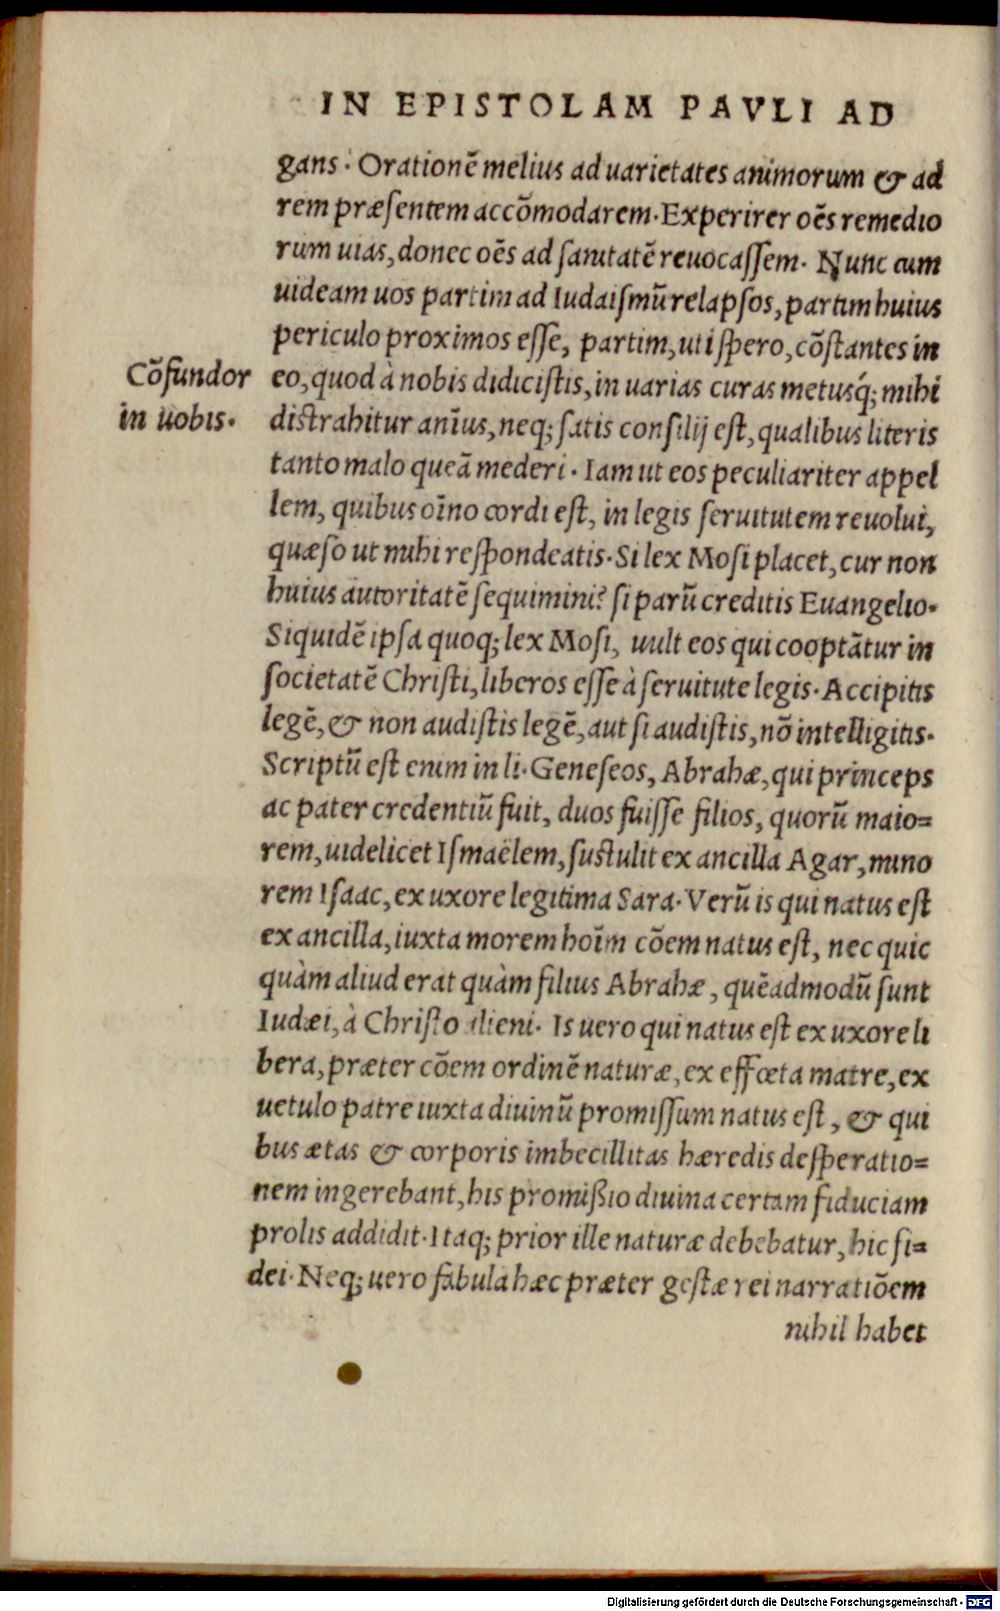 IN EPISTOLAM PAVLI AD
gans. Orationē melius ad uarietates animorum & ad
rem præſentem accōmodarem. Experirer oēs remedio
rum uias, donec oēs ad ſanitatē reuocaſſem. Nunc cum
uideam uos partim ad Iudaiſmū relapſos, partim huius
periculo proximos eſſe, partim, uti ſpero, cōſtantes in
Cōfundor
in uobis.
eo, quod à nobis didiciſtis, in uarias curas metusq́; mihi
diſtrahitur anīus, neq; ſatis conſilij eſt, qualibus literis
tanto malo queā mederi. Iam ut eos peculiariter appel
lem, quibus oīno cordi eſt, in legis ſeruitutem reuolui,
quæſo ut mihi reſpondeatis. Si lex Moſi placet, cur non
huius autoritatē ſequimini? ſi parū creditis Euangelio.
Siquidē ipſa quoq; lex Moſi, uult eos qui cooptātur in
ſocietatē Chriſti, liberos eſſe à ſeruitute legis. Accipitis
legē, & non audiſtis legē, aut ſi audiſtis, nō intelligitis.
Scriptū eſt enim in li. Geneſeos, Abrahæ, qui princeps
ac pater credentiū fuit, duos fuiſſe filios, quorū maio=
rem, uidelicet Iſmaëlem, ſuſtulit ex ancilla Agar, mino
rem Iſaac, ex uxore legitima Sara. Verū is qui natus eſt
ex ancilla, iuxta morem hoīm cōem natus eſt, nec quic
quàm aliud erat quàm filius Abrahæ, quēadmodū ſunt
Iudæi, à Chriſto alieni. Is uero qui natus eſt ex uxore li
bera, præter cōem ordinē naturæ, ex effœta matre, ex
uetulo patre iuxta diuinū promiſſum natus eſt, & qui
bus ætas & corporis imbecillitas hæredis deſperatio=
nem ingerebant, his promißio diuina certam fiduciam
prolis addidit. Itaq; prior ille naturæ debebatur, hic fi=
dei. Neq; uero fabula hæc præter geſtæ rei narratiōem
nihil habet
Digitalisierung gefördert durch die Deutsche Forschungsgemeinschaft - DFG